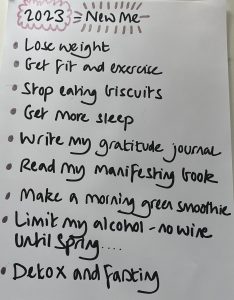 2023 = New Me
• Lose weight
• Get Fit and exercise
• Stop eating biscuits
• Get more sleep
• Write my gratitude journal
• Read my manifesting book
• Make a morning green smoothie
• Limit my alcohol - no wine
until Spring....
• Detox and Fasting